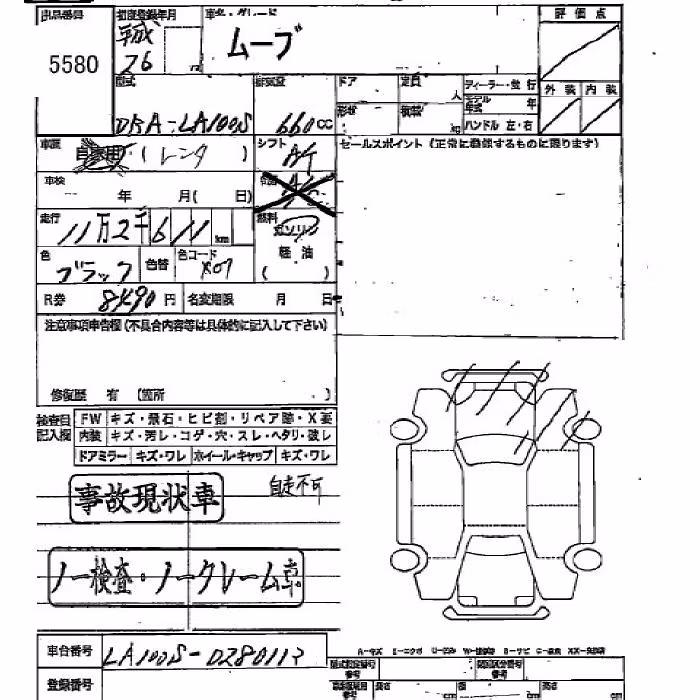 出品番号 初度登録年月 車名・グレード 評価点
5580 平成 26 ムーブ
型式 排気量 ドア 定員 人 ディーラー・並行 外装 内装
DBA-LA100S 660cc 形状 積載 kg モデル年式 年
ハンドル 左・右
車歴 自家用・(レンタ) シフト AT セールスポイント(正常に登録するものに限ります)
車検 年 月( 日)
走行 11万2千611km 燃料 ガソリン
軽油
( )
色 ブラック 色替 色コード X07
R券 8490円 名変期限 月 日
注意事項申告欄(不具合内容等は具体的に記入して下さい)
修復歴 有 (箇所 )
検査員記入欄 FW キズ・飛石・ヒビ割・リペア跡・X要
内装 キズ・汚レ・コゲ・穴・スレ・ヘタリ・破レ
ドアミラー キズ・ワレ ホイール・キャップ キズ・ワレ
自走不可
事故現状車
ノー検査・ノークレーム車
車台番号 LA100S-0280113
登録番号 型式指定番号 類別区分番号
長さ cm cm 高さ